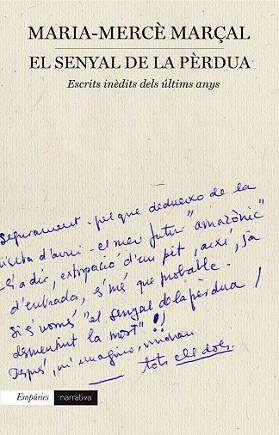 MARIA-MERCÈ MARÇAL
EL SENYAL DE LA PÈRDUA
Escrits inèdits dels últims anys
segurament - pel que dedueixo de la
visita d'avui - el meu futur "amazònic"
- És a dir, extirpació d'un pit, així, ja
d'entrada, és més que probable.
Si és només "el senyal de la pèrdua /
desmentint la mort"!!
Després, m'imagino, vindran
tots els dols.
Empúries narrativa